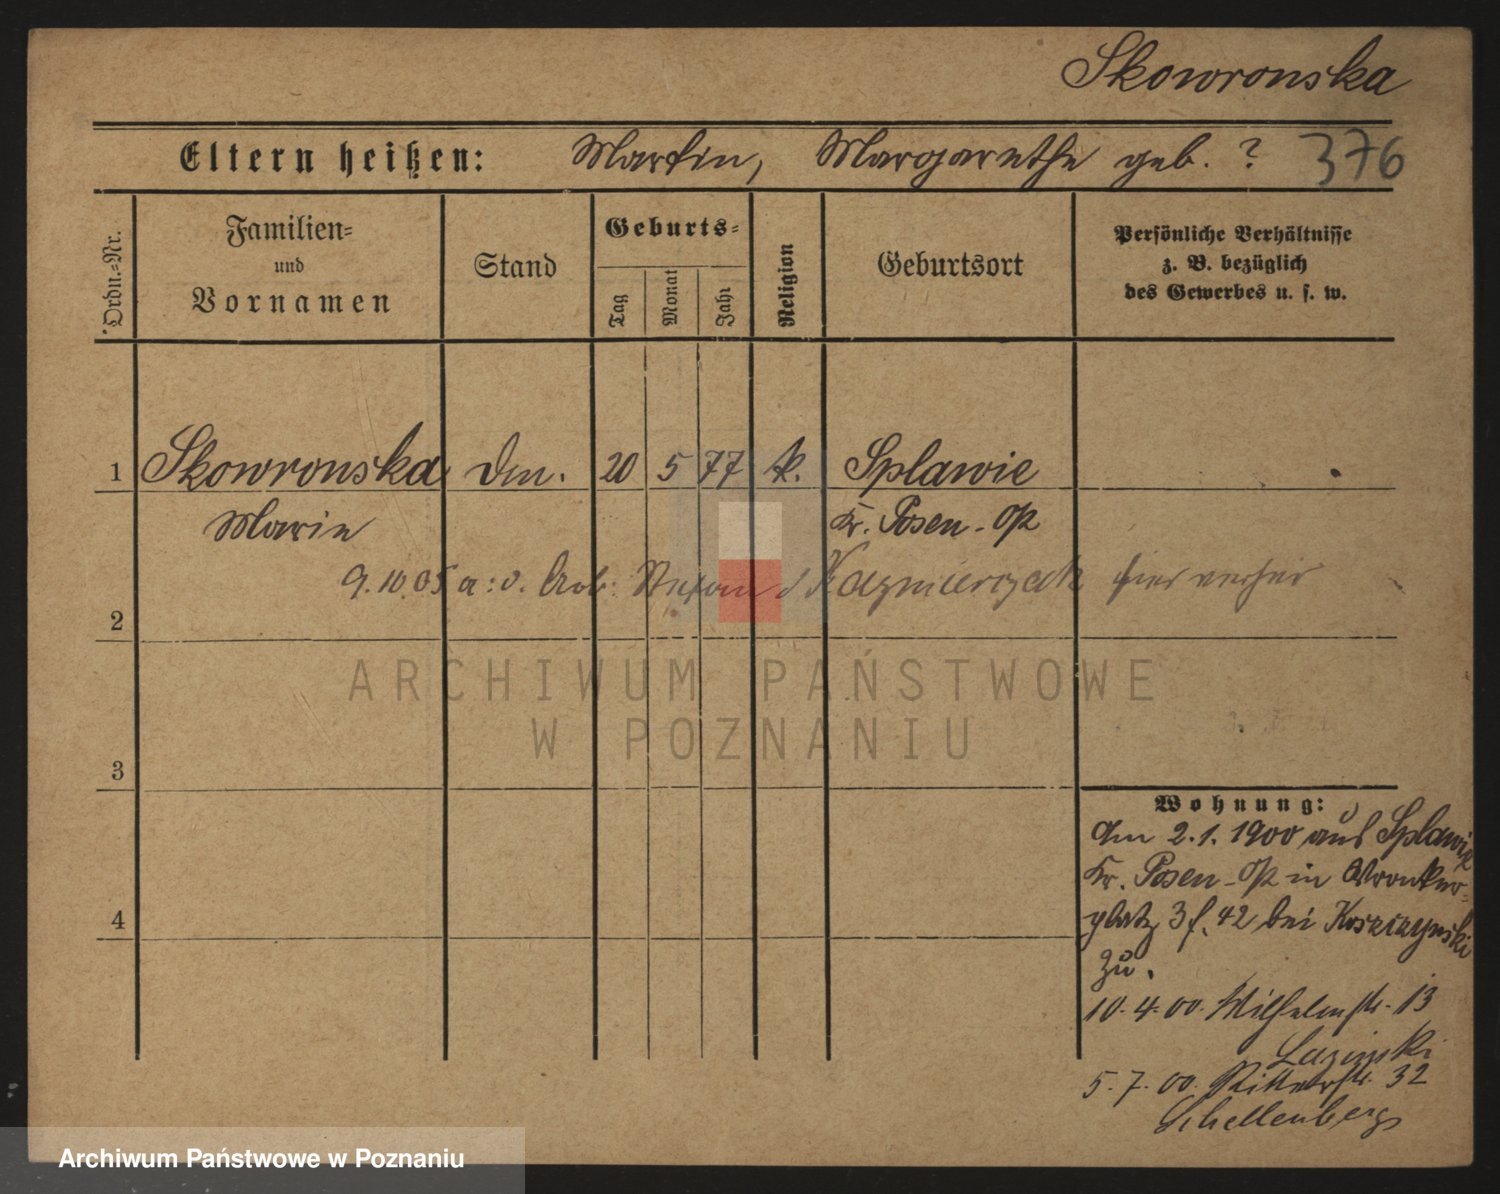 Skowronska
Eltern heißen: Martin, Margarethe geb. ? 376
Ordn.=Nr.
Familien=
und
Vornamen
Stand
Geburts=
Tag
Monat
Jahr
Religion
Geburtsort
Persönliche Verhältnisse
z. B. bezüglich
des Gewerbes u. s. w.
1 Skowronska Dm. 20 5 77 k. Splawie
Marie Kr. Posen-Op
9.10.05 a: d. Arb: Stefan Kazmierczak hier verheir
2
ARCHIWUM PAŃSTWOWE
W POZNANIU
3
Wohnung:
Am 2.1.1900 aus Splawie
Kr. Posen-Op in Wronker-
4
platz 3 f. 42 bei Koszczynski
zu.
10.4.00. Wilhelmstr. 13
Lazinski
5.7.00. Ritterstr. 32
Schellenberg
Archiwum Państwowe w Poznaniu